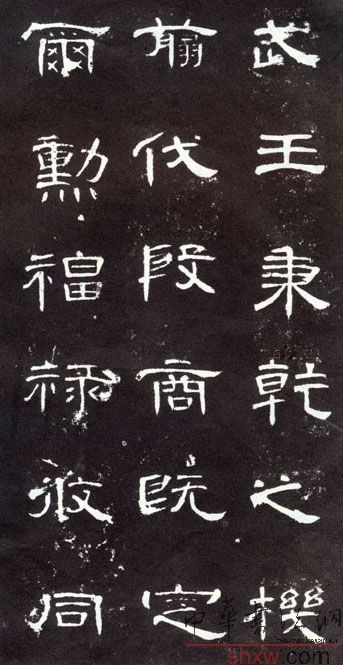 武王秉乾之機
翦伐殷商既定
爾勳福祿攸同
shxw.com